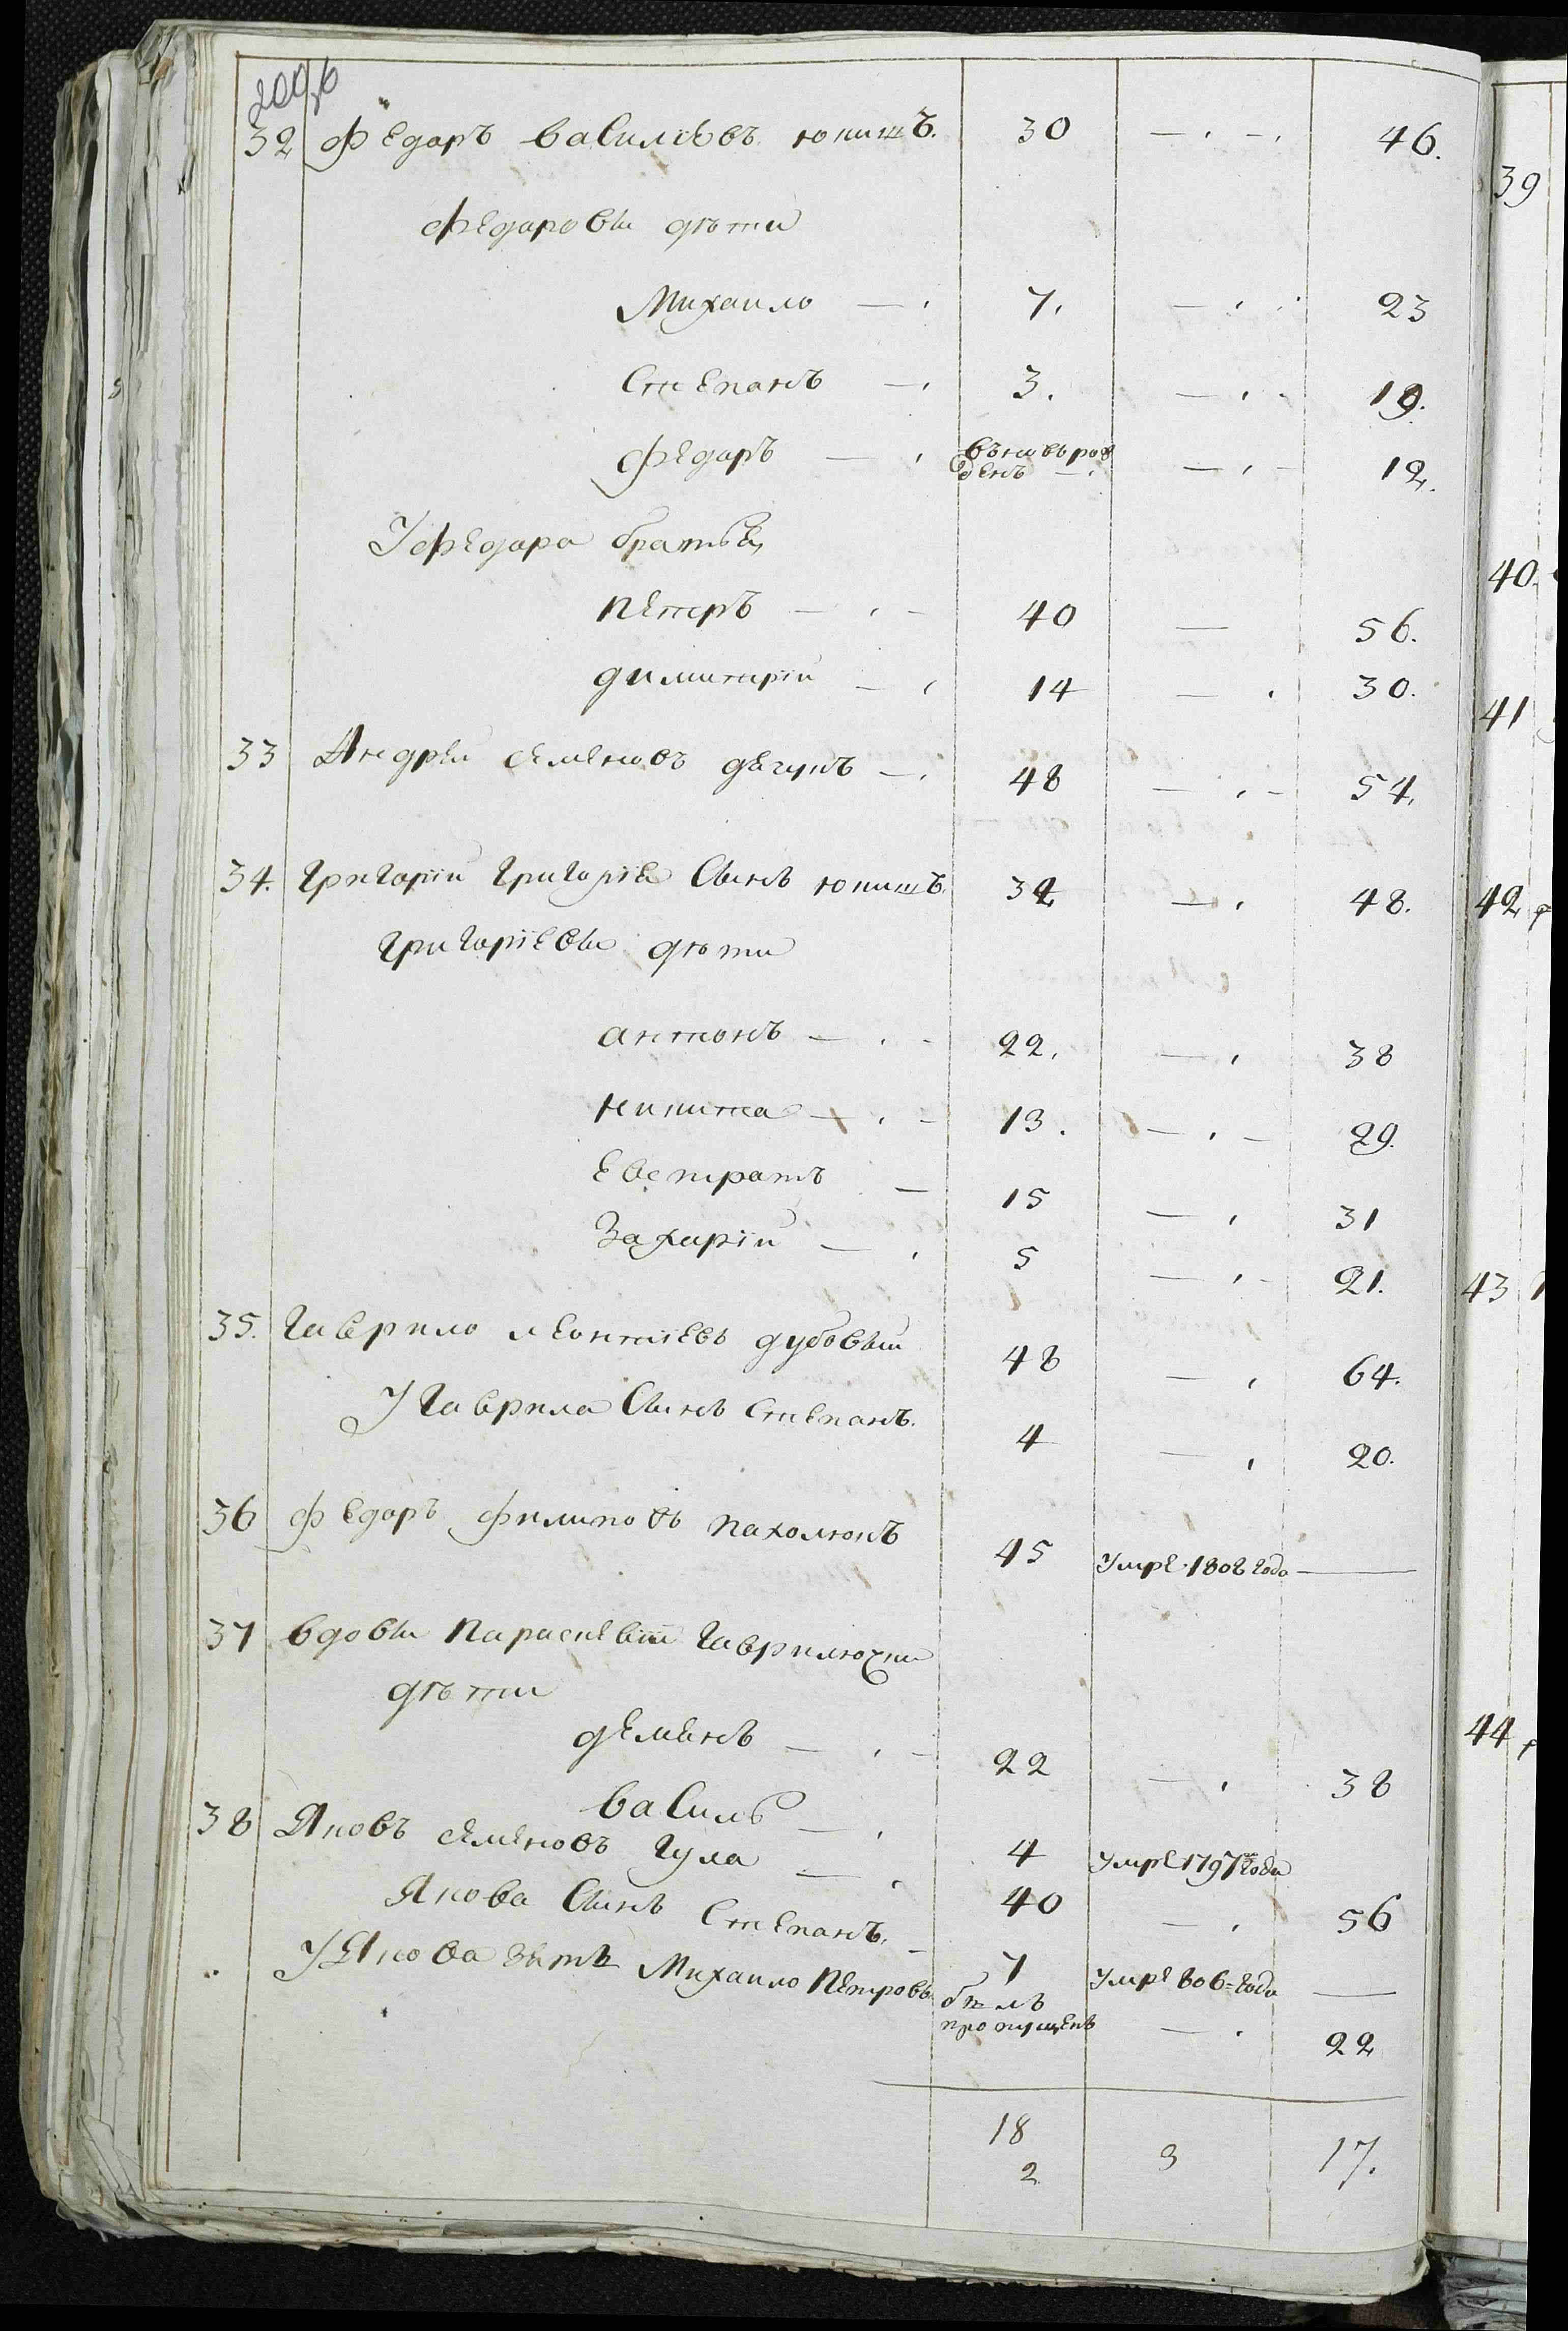 32 Федаръ Василіевъ юпишъ. 30 — 46.
Федаровы дѣти
Михаило — 7. — 23
Степанъ — 3. — 19.
Федаръ — вновь рожденъ — 12.
У Федара братья
Петръ — 40 — 56.
Димитрій — 14 — 30.
33 Андрей Семеновъ 48 — 54.
34. Григорій Григоріевъ Сынъ юпишъ 32 — 48.
Григоріевы дѣти
Антонъ — 22. — 38
Никита — 13. — 29.
Евстратъ — 15 — 31
Захарій — 5 — 21.
35. Гаврило Леонтіевъ дубовый 48 — 64.
У Гаврила Сынъ Степанъ. 4 — 20.
36 Федаръ Филиповъ Пахолюкъ 45 Умре 1808 года —
37 Вдовы Параскевіи Гаврилючки
дѣти
Демянъ — 22 — 38
Василь — 4 Умре 1797 года
38 Яковъ Семеновъ Гула — 40 — 56
Якова Сынъ Степанъ. — 7 Умре 806 года —
У Якова зять Михаило Петровъ былъ пропущенъ — 22
18 3 17.
2
39
40.
41
42
43
44